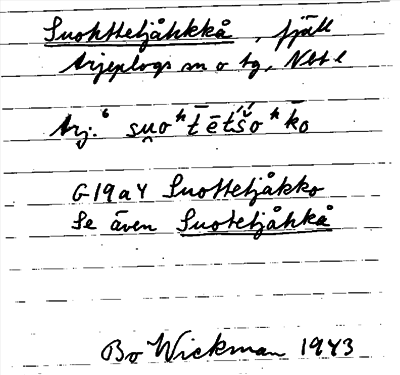 Suokttetjåkkkå, fjäll
Arjeplogs sn o tg, Nbtl
Arj.⁶ su̯oʰt̄ētš́oʰk̄o
G19a4 Suottetjåkko
Se även Suotetjåkkå
Bo Wickman 1943